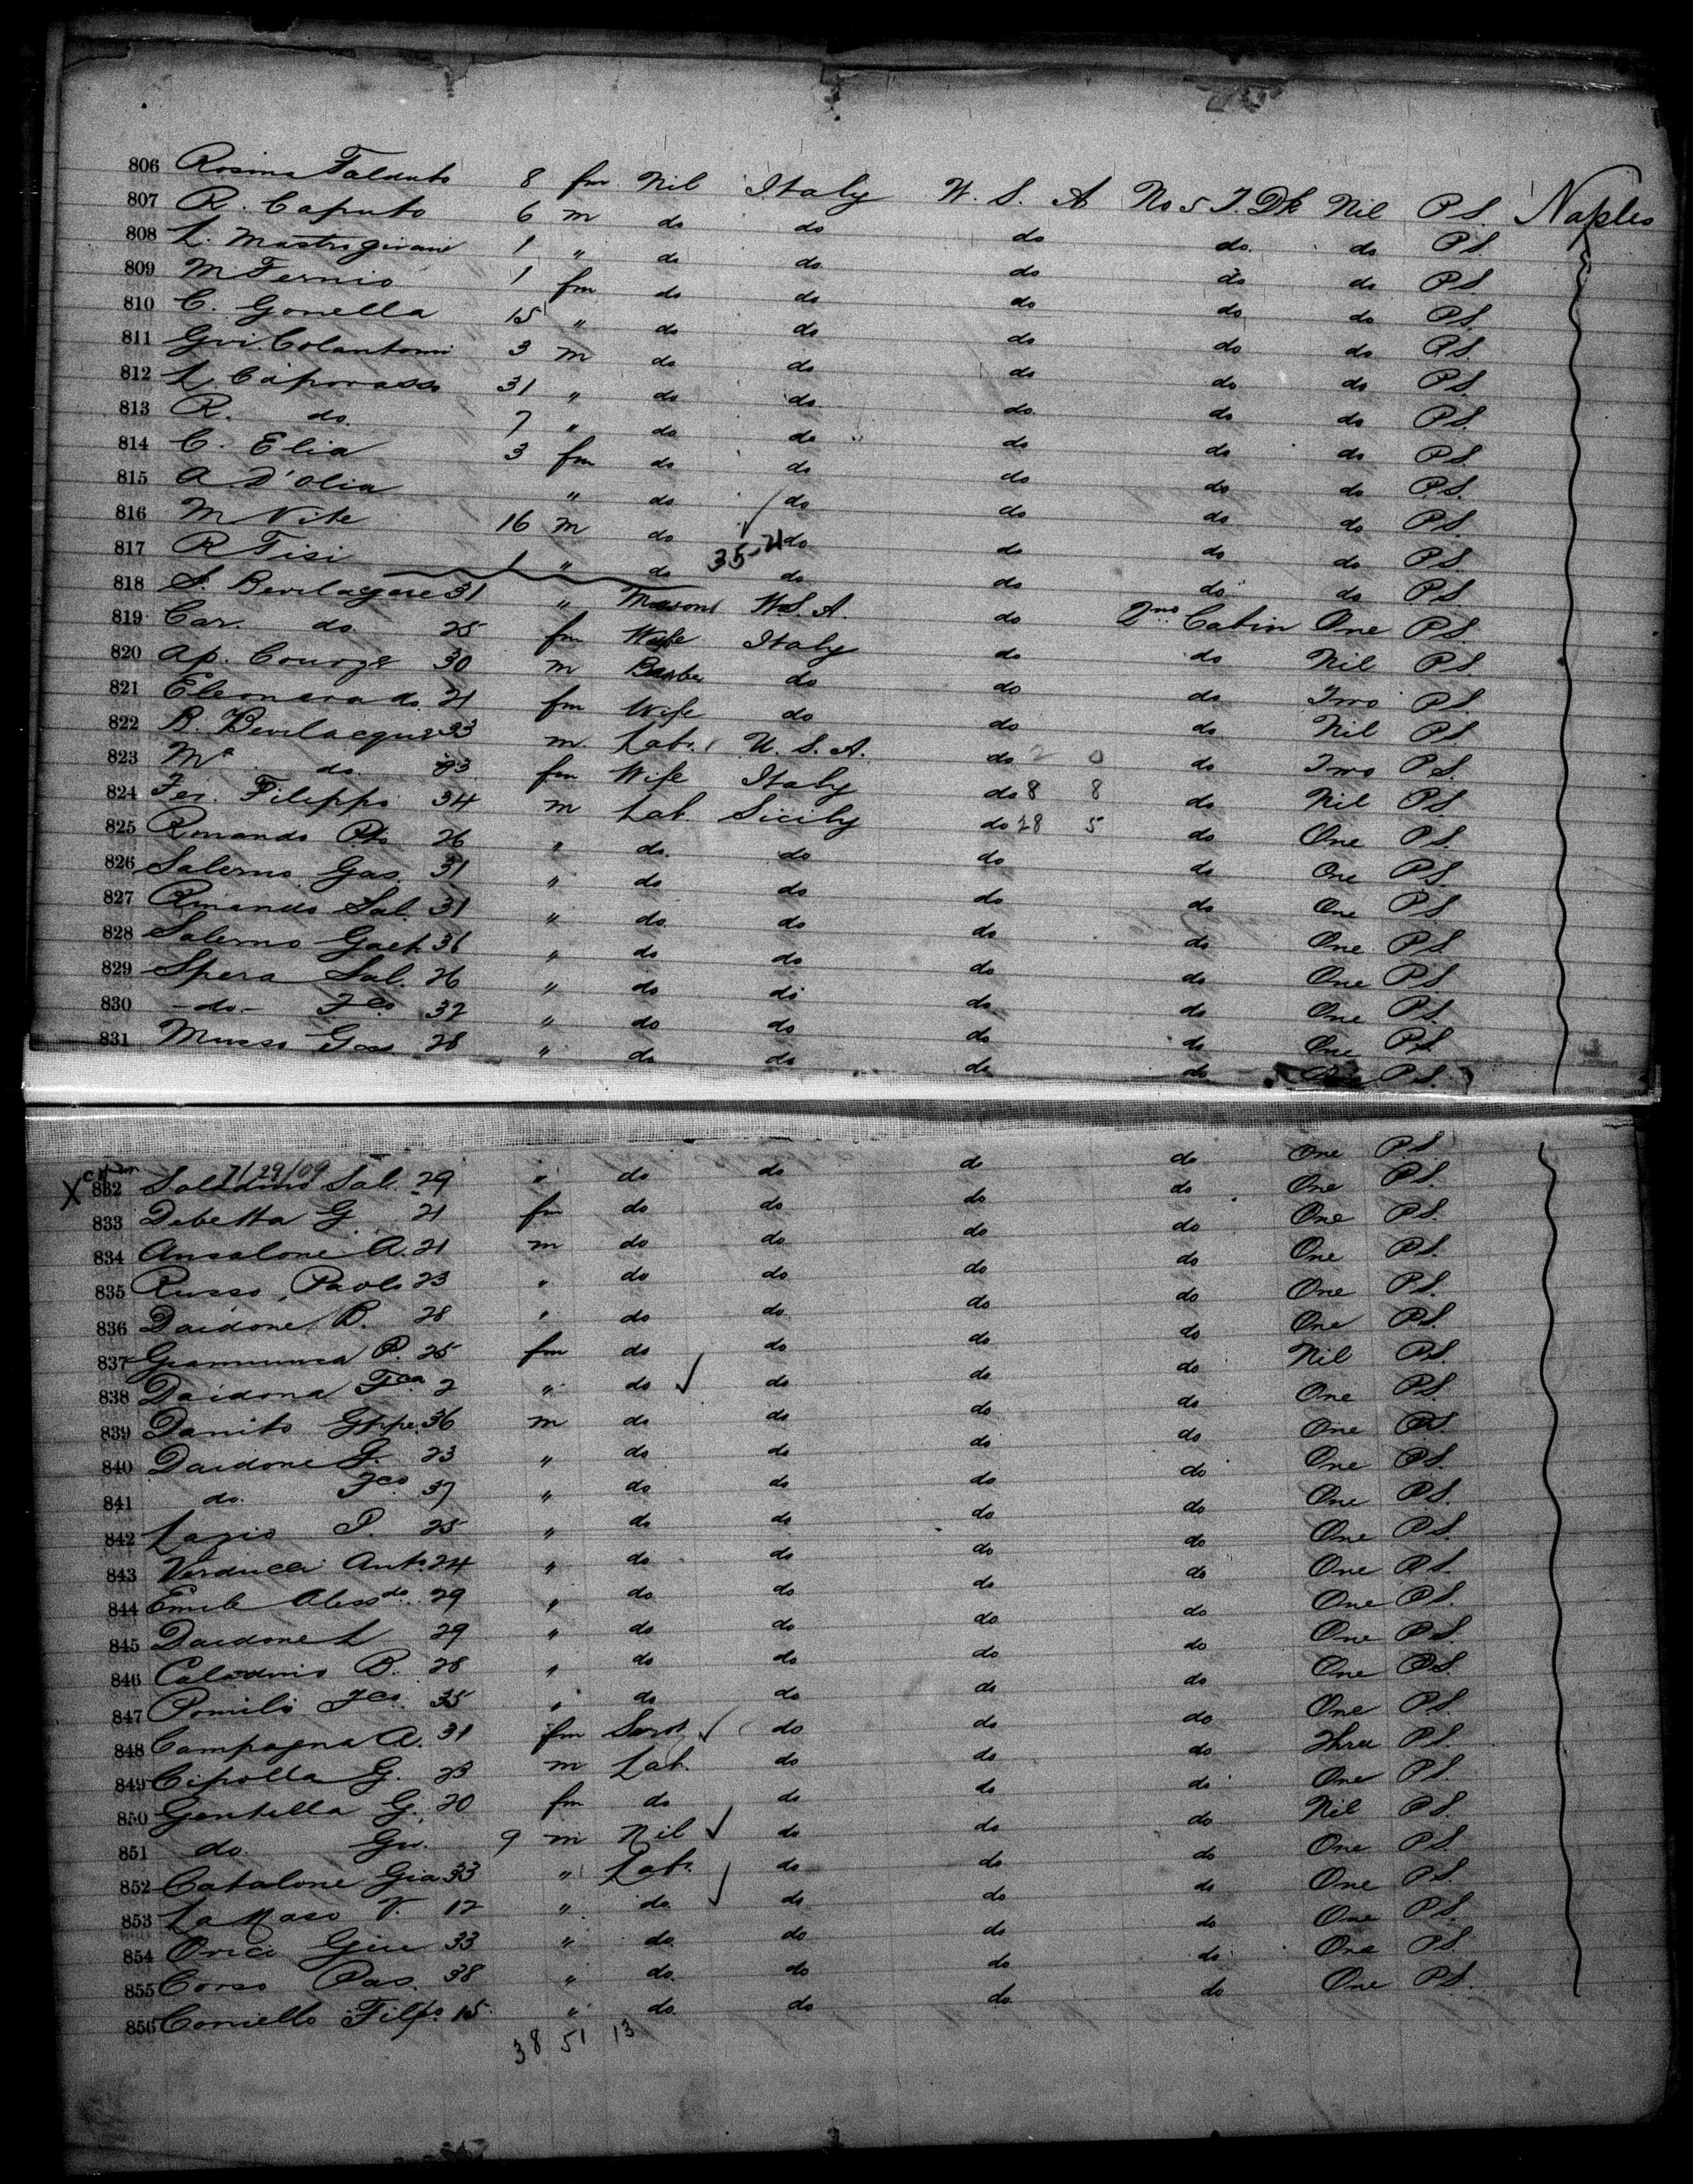 806 Rosina Falduto 8 fm Nil Italy U. S. A No 5 T. Dk Nil PS Naples
807 R. Caputo 6 m do do do do do PS.
808 L. Mastrogivani 1 " do do do do do PS.
809 M Fernio 1 fm do do do do do PS.
810 C. Gonella 15 " do do do do do PS.
811 Gvi. Colantomi 3 m do do do do do PS.
812 L. Caporasso 31 " do do do do do PS.
813 R. do. 7 " do do do do do PS.
814 C. Elia 3 fm do do do do do PS.
815 A D'Olia " do do do do do PS.
816 M Vite 16 m do do do do do PS.
817 R Fisi 1 " do 35-21 do do do do PS.
818 S. Bevilaquae 31 " Mason U.S.A. do 2nd Cabin One PS
819 Car. do. 25 fm Wife Italy do do Nil PS.
820 Ap. 30 m Barber do do do Two PS
821 Eleonora do. 21 fm Wife do do do Nil PS.
822 B. Bevilacqua 33 m. Labr. U. S. A. do 2 0 do Two PS.
823 Ma do. 23 fm Wife Italy do 8 8 do Nil PS.
824 Fer. Filippi 34 m Lab. Sicily do 28 5 do One PS.
825 Rinando Pto 26 " do. do do do One PS.
826 Salerno Gas. 31 " do do do do One PS
827 Rinando Sal. 31 " do. do do do One PS.
828 Salerno Gaet. 36 " do do do do One PS.
829 Spera Sal. 26 " do do do do One PS.
830 - do - Fco 32 " do do do do One PS.
831 Musso Gas. 28 " do do do do One PS.
7/29/09
X 832 Saladino Sal. 29 " do do do do One PS.
833 Debetta G 21 fm do do do do One PS.
834 Ansalone A. 21 m do do do do One PS.
835 Russo, Paolo 23 " do do do do One PS.
836 Daidone B. 28 " do do do do One PS.
837 Giammusca P. 25 fm do do do do One PS.
838 Daidona Fca 2 " do do do do Nil PS.
839 Danito Gppe. 36 m do do do do One PS.
840 Daidone G. 23 " do do do do One PS.
841 do. Fco 37 " do do do do One PS.
842 Lazio P. 25 " do do do do One PS.
843 Verducci Anto. 24 " do do do do One PS.
844 Emile Alessdo. 29 " do do do do One PS.
845 Daidone L 29 " do do do do One PS.
846 Caladinio B. 28 " do do do do One PS.
847 Pomilo Fco. 35 " do do do do One PS.
848 Campagna A. 31 fm Servt. do do do One PS.
849 Cipolla G. 23 m Lab. do do do Three PS.
850 Gentella G. 20 fm do do do do One PS.
851 do Gu. 9 m Nil do do do Nil PS.
852 Catalone Gia 33 " Labr. do do do One PS.
853 La Maso V. 12 " do. do do do One PS.
854 Orici Giu 33 " do. do do do One PS.
855 Corso Pas. 38 " do. do do do One PS.
856 Coniello Filpo. 15. " do. do do do One PS.
38 51 13